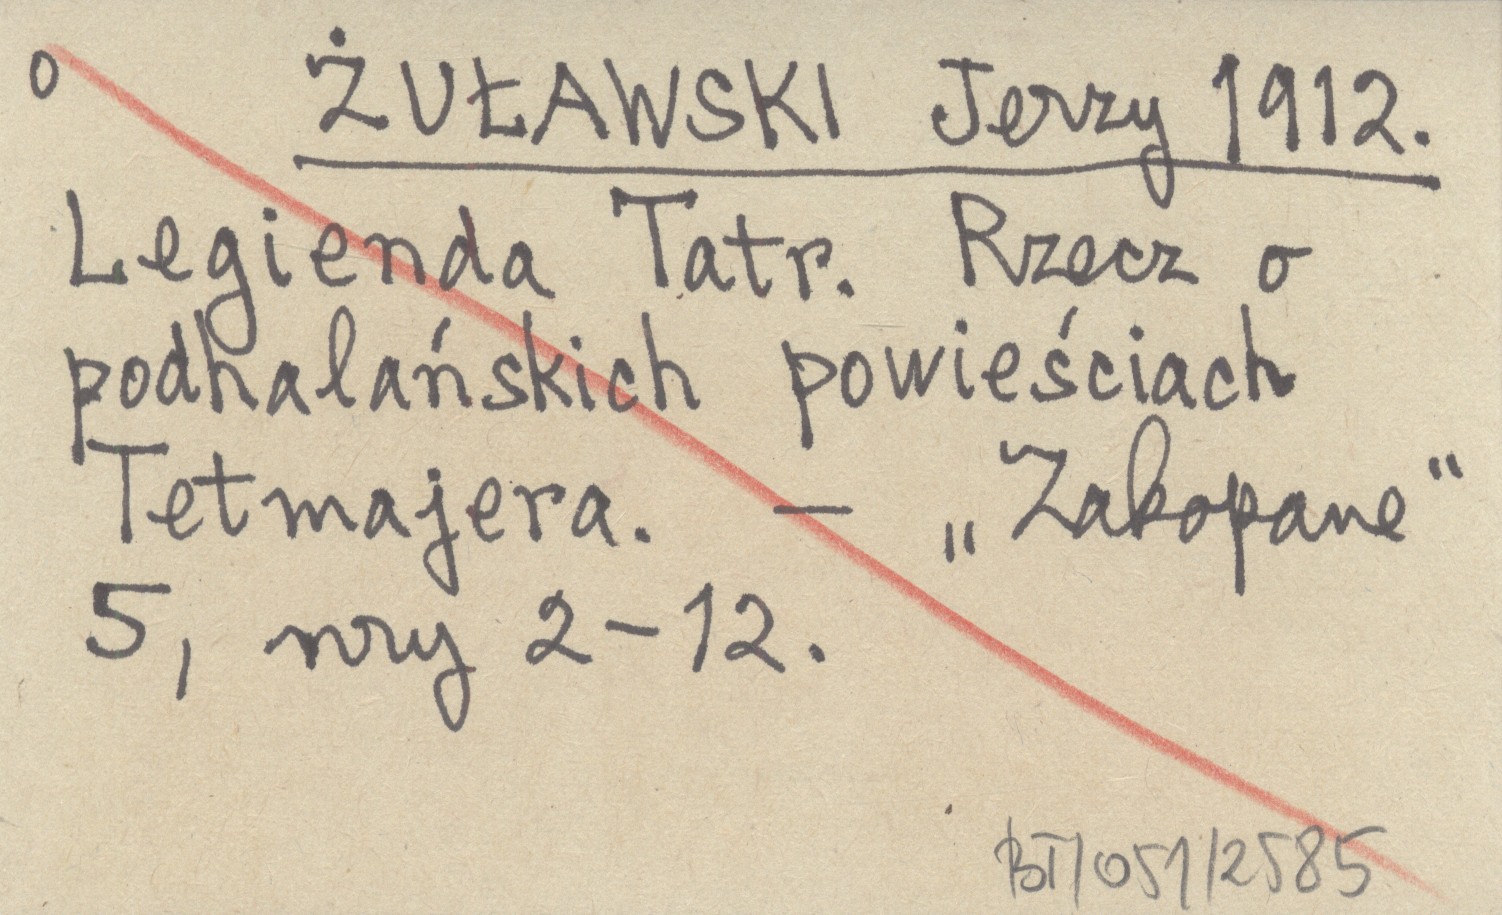 o ŻUŁAWSKI Jerzy 1912.
Legienda Tatr. Rzecz o
podhalańskich powieściach
Tetmajera. — „Zakopane“
5, nry 2–12.
BT/051/2585